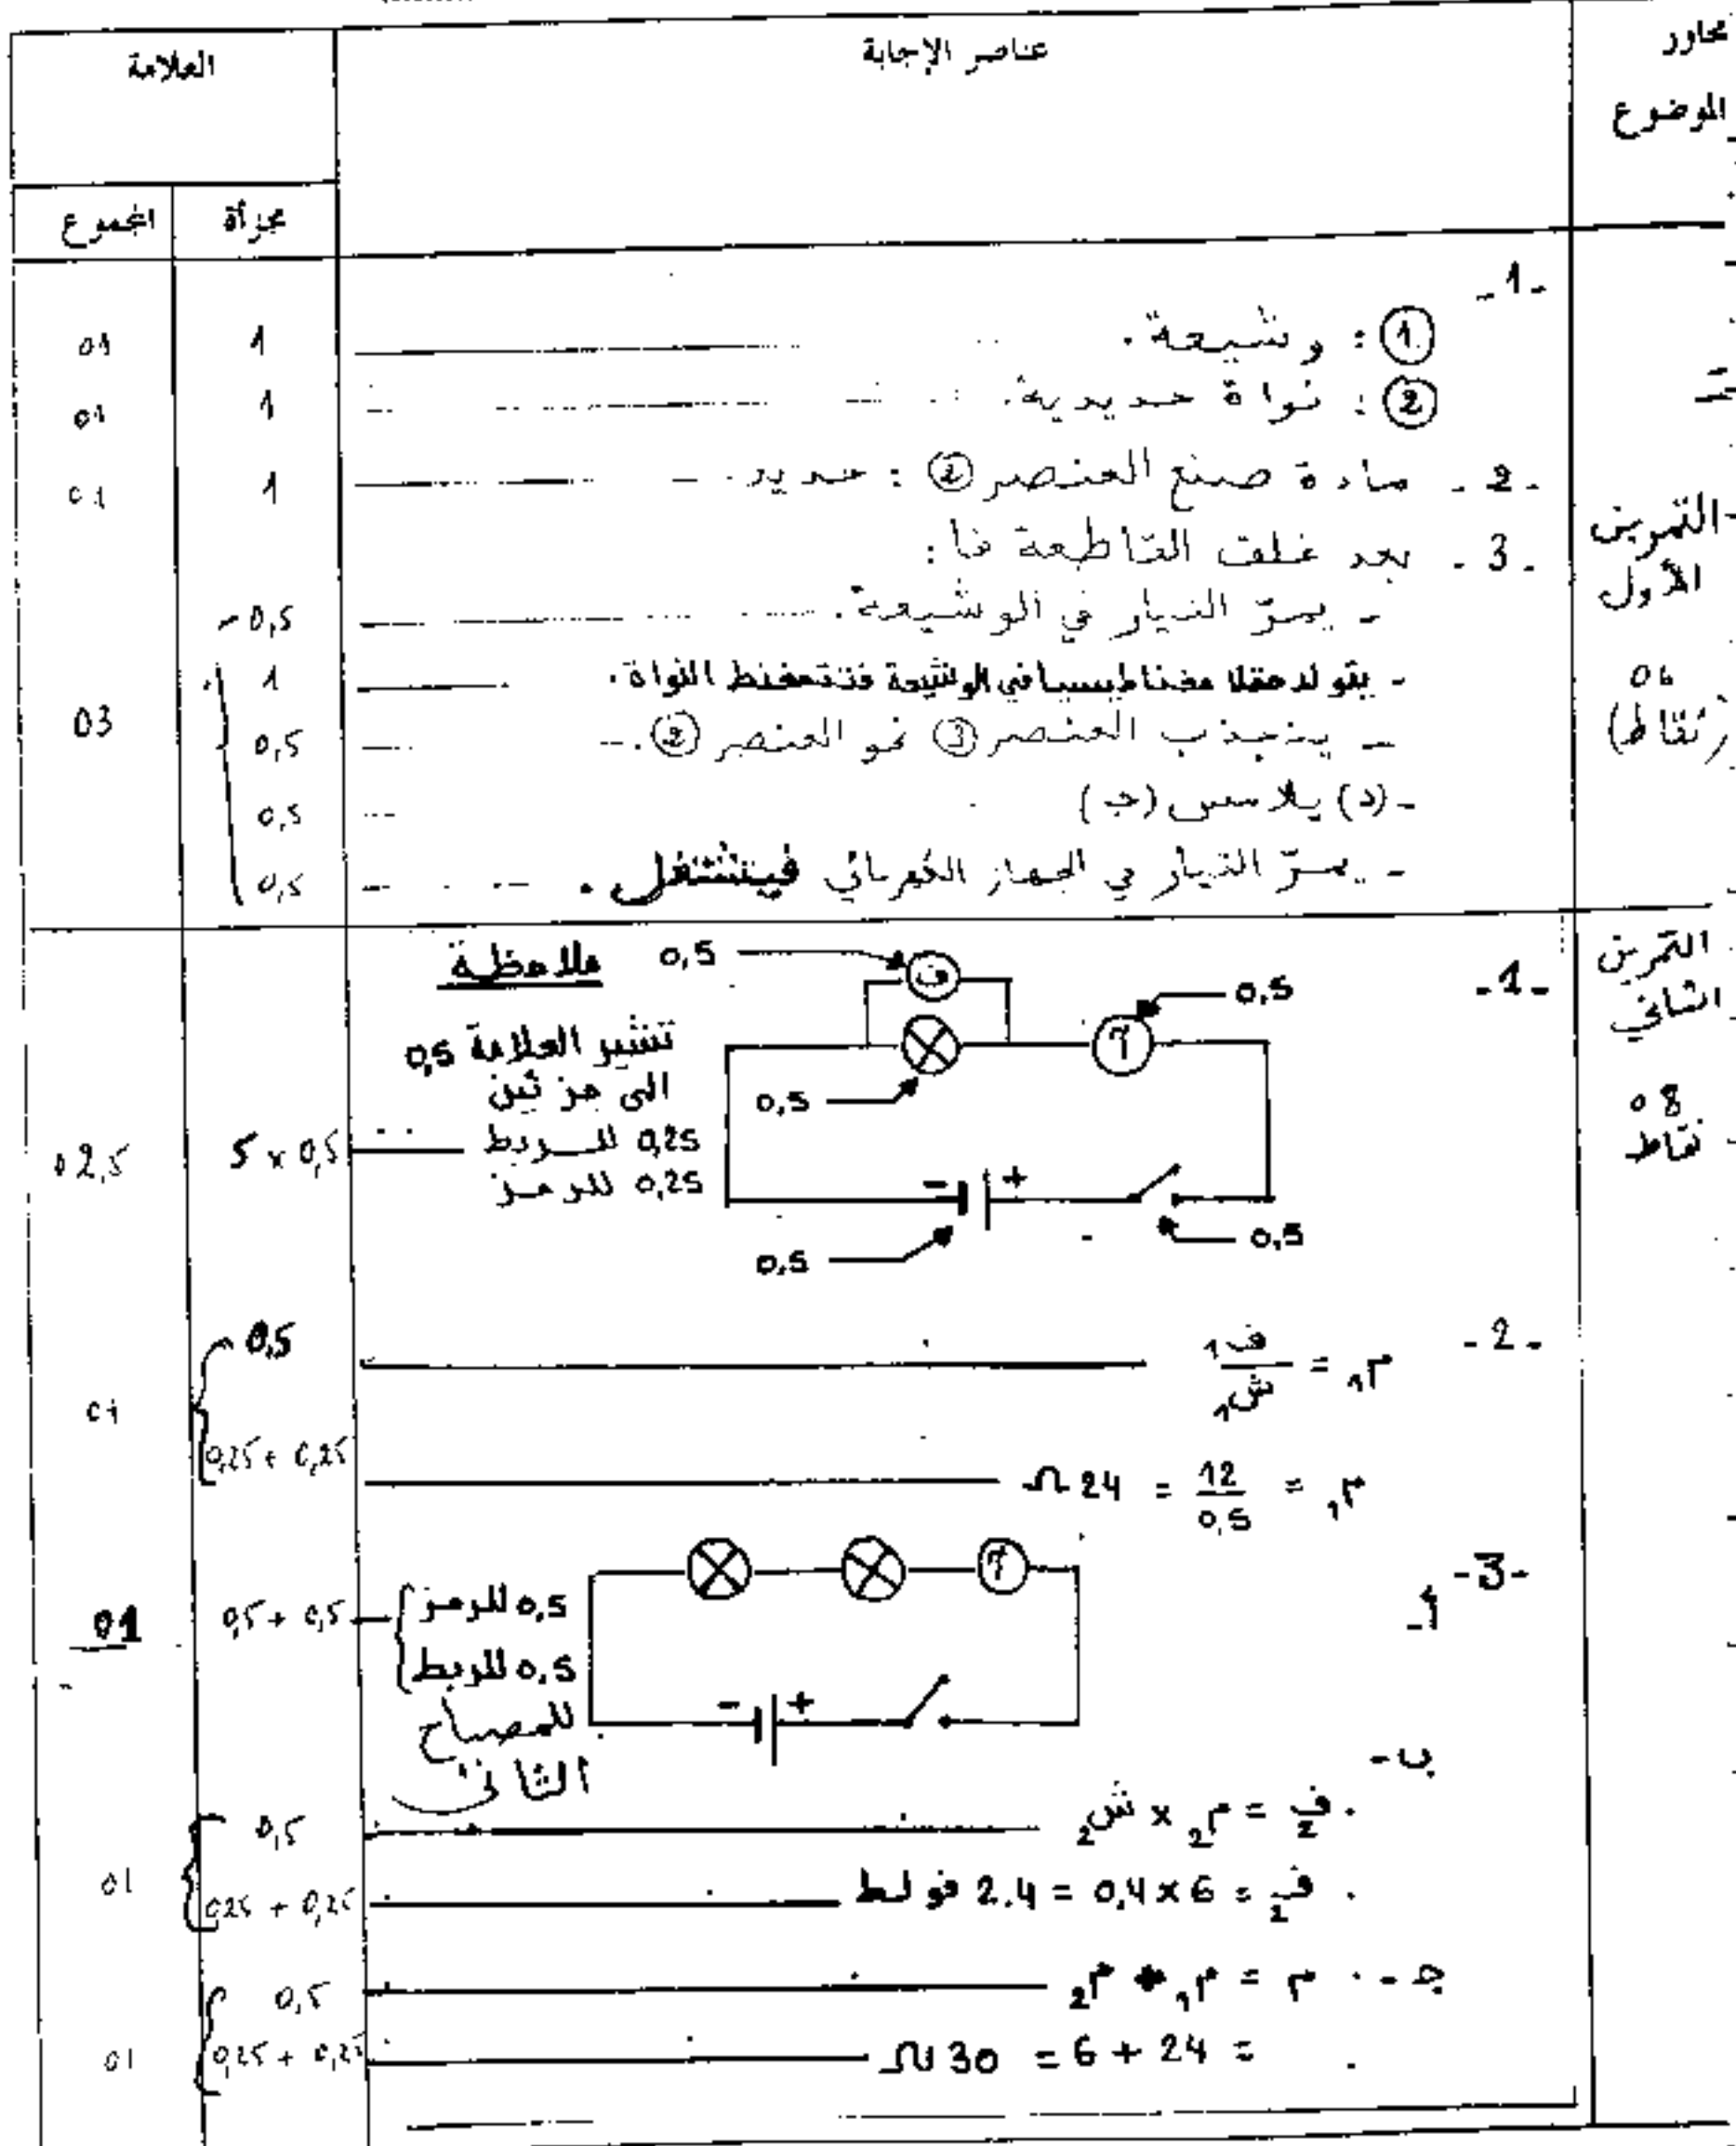 محاور الموضوع
عناصر الإجابة
العلامة
مجزأة
المجموع
التمرين الأول
06 نقاط)
-1-
① : وشيعة. 1 01
② : نواة حديدية. 1 01
-2- مادة صنع العنصر ② : حديد. 1 01
-3- بعد غلق القاطعة فا :
- يمرّ التيار في الوشيعة. 0,5
- يتولد حقلا مغناطيسيا في الوشيعة فتتمغنط النواة. 1
- ينجذب العنصر ③ نحو العنصر ②. 0,5
03
- (د) يلامس (جـ) 0,5
- يمرّ التيار في الجهاز الكهربائي فيشتغل. 0,5
التمرين الثاني
08 نقاط
-1-
ف
أ
0,5
0,5
0,5
- +
0,5
0,5
ملاحظة
تشير العلامة 0,5
الى جزئين
0,25 للربط
0,25 للرمز
5 x 0,5
02,5
-2-
م1 = ف1 / ش1 0,5
م1 = 12 / 0,5 = 24 Ω 0,25 + 0,25
01
-3-
أ-
أ
- +
0,5 للرمز
0,5 للربط
للمصباح
الثاني
0,5 + 0,5
01
ب-
. ف2 = م2 x ش2 0,5
. ف2 = 6 x 0,4 = 2.4 فولط 0,25 + 0,25
01
جـ - . م = م1 + م2 0,5
. = 24 + 6 = 30 Ω 0,25 + 0,25
01